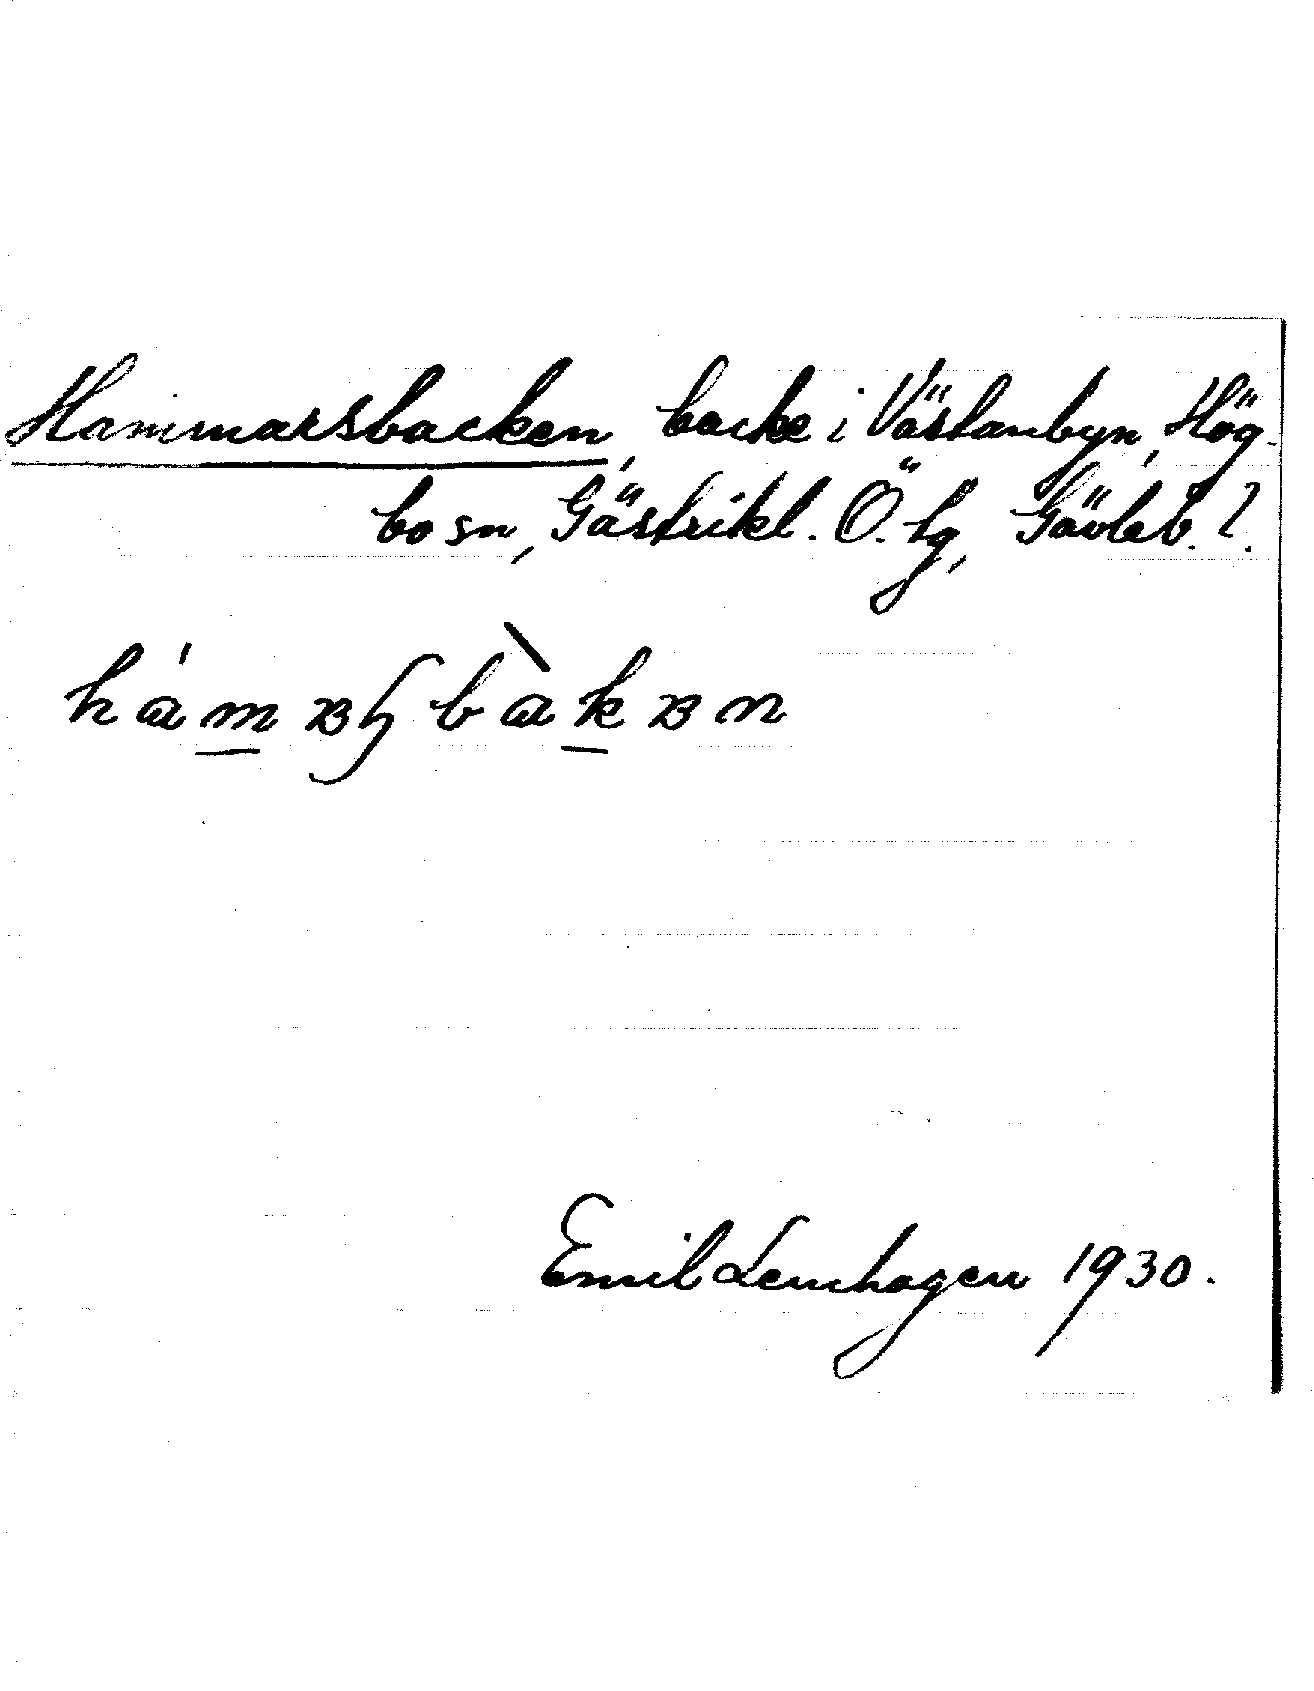 Hammarsbacken, backe i Västanbyn, Hög-
bo sn, Gästrikl. Ö. tg, Gävleb. l.
hámʚʂbàkʚn
Emil Lenhagen 1930.